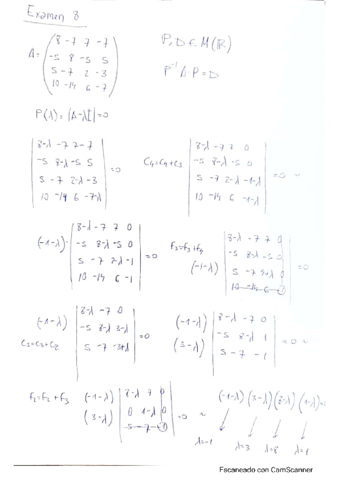 Examen 8
A = ( 8 -7 7 -7
-5 8 -5 5
5 -7 2 -3
10 -14 6 -7 )
P, D ∈ M(ℝ)
P⁻¹ A P = D
P(λ) = |A-λI| = 0
| 8-λ -7 7 -7
-5 8-λ -5 5
5 -7 2-λ -3
10 -14 6 -7-λ | = 0
C₄=C₄+C₃
| 8-λ -7 7 0
-5 8-λ -5 0
5 -7 2-λ -1-λ
10 -14 6 -1-λ | = 0 ~
(-1-λ) | 8-λ -7 7 0
-5 8-λ -5 0
5 -7 2-λ -1
10 -14 6 -1 | = 0
F₃=F₃+F₄
(-1-λ) | 8-λ -7 7 0
-5 8-λ -5 0
10 -14 6 |
(-1-λ) | 8-λ -7 0
-5 8-λ 3-λ
5 -7 -3+λ | = 0
C₃=C₃+C₂
(-1-λ) (3-λ) | 8-λ -7 0
-5 8-λ 1
5 -7 -1 | = 0 ~
F₂=F₂+F₃ (-1-λ) (3-λ) | 8-λ 7 0
0 1-λ 0
5 -7 | = 0 ~
(-1-λ) (3-λ) (8-λ) (1-λ) =
λ=-1 λ=3 λ=8 λ=1
Escaneado con CamScanner